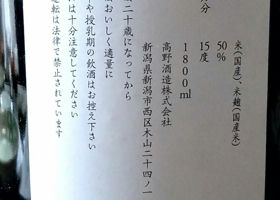 米(国産)、米麹(国産米)
50%
15度
1800ml
高野酒造株式会社
新潟県新潟市西区木山二十四ノ一
二十歳になってから
おいしく適量に
や授乳期の飲酒はお控え下さい
は十分注意してください
転は法律で禁止されています